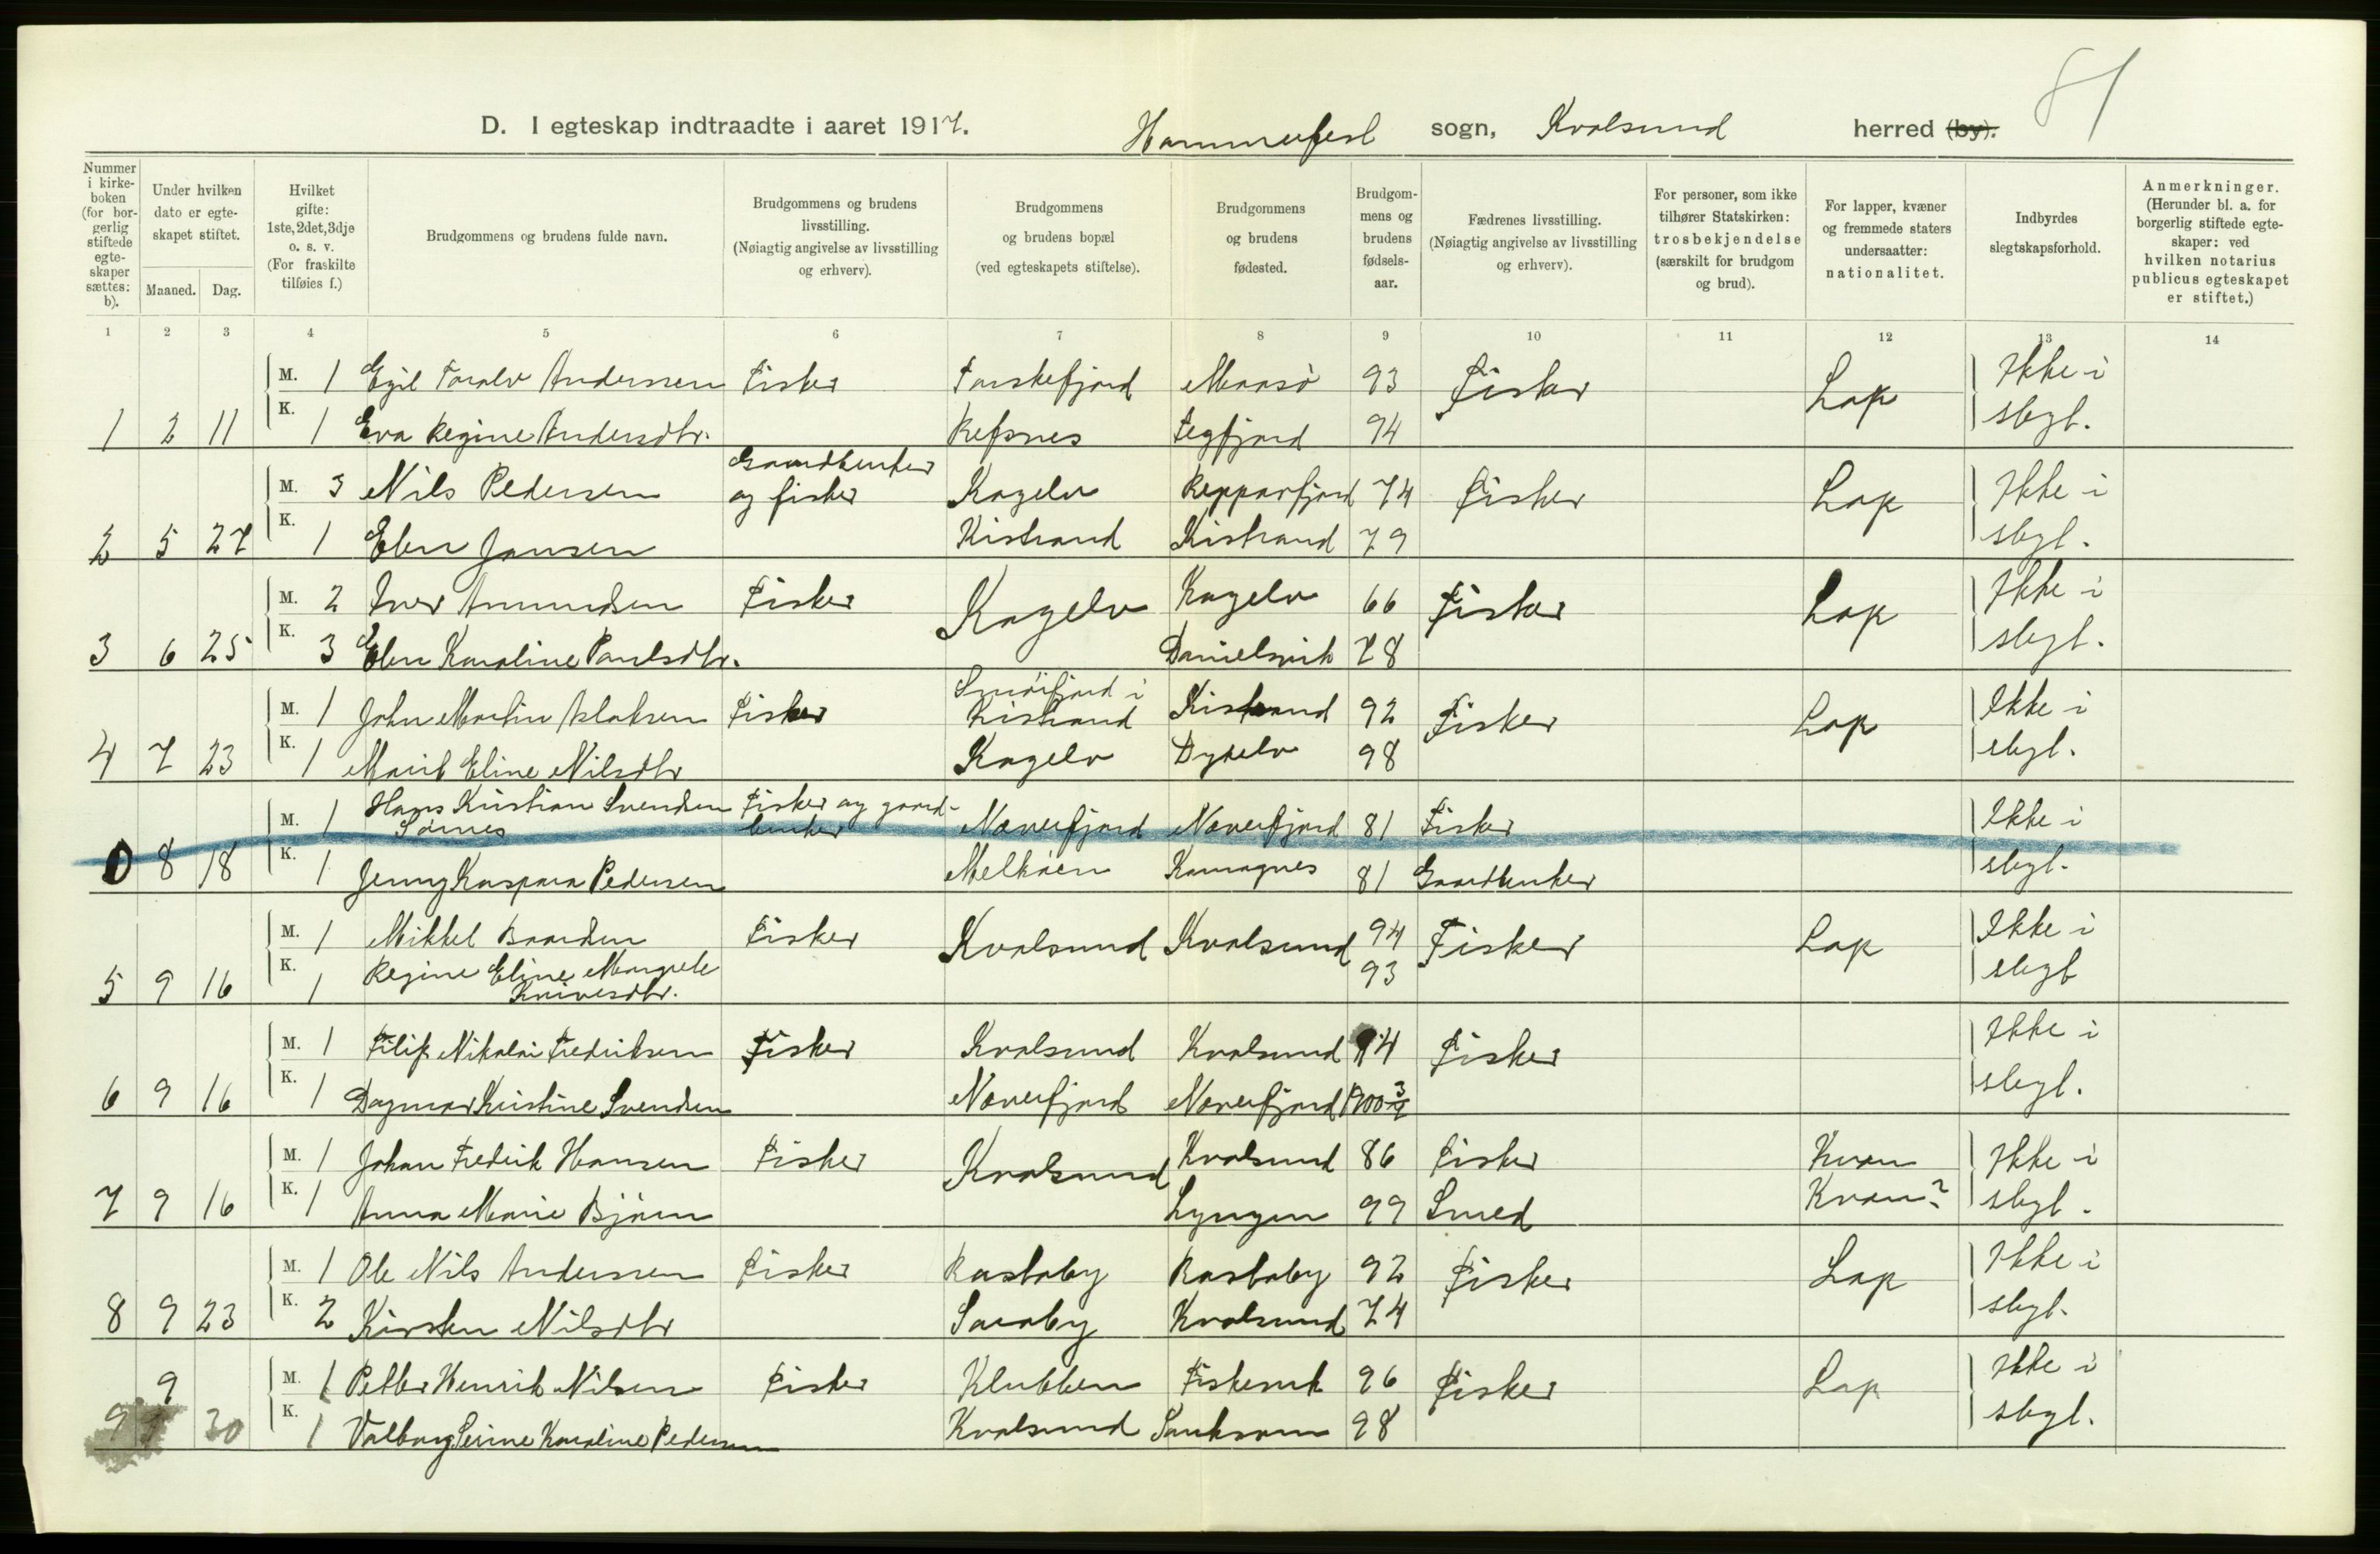 81
D. I egteskap indtraadte i aaret 1917. Hammerfest sogn, Kvalsund herred (by).
Nummer i kirke-boken (for bor-gerlig stiftede egte-skaper sættes: b).
Under hvilken dato er egte-skapet stiftet.
Maaned. Dag.
Hvilket gifte: 1ste, 2det, 3dje o. s. v. (For fraskilte tilføies f.)
Brudgommens og brudens fulde navn.
Brudgommens og brudens livsstilling. (Nøiagtig angivelse av livsstilling og erhverv).
Brudgommens og brudens bopæl (ved egteskapets stiftelse).
Brudgommens og brudens fødested.
Brudgom-mens og brudens fødsels-aar.
Fædrenes livsstilling. (Nøiagtig angivelse av livsstilling og erhverv).
For personer, som ikke tilhører Statskirken: trosbekjendelse (særskilt for brudgom og brud).
For lapper, kvæner og fremmede staters undersaatter: nationalitet.
Indbyrdes slegtskapsforhold.
Anmerkninger. (Herunder bl. a. for borgerlig stiftede egte-skaper: ved hvilken notarius publicus egteskapet er stiftet.)
1 2 3 4 5 6 7 8 9 10 11 12 13 14
M. 1 Egil Toralv Anderssen Fisker Torskefjord Maasø 93 Fisker Lap Ikke i
1 2 11 K. 1 Eva Regine Andersdtr. Refsnes 94 slegt.
Gaardbruker
M. 3 Nils Pedersen og fisker Kagelv Repparfjord 74 Fisker Lap Ikke i
2 5 27 K. 1 Elen Jansen Kistrand Kistrand 79 slegt.
M. 2 Iver Amundsen Fisker Kagelv Kagelv 66 Fisker Lap Ikke i
3 6 25 K. 3 Elen Karoline Paulsdtr. Danielsvik 78 slegt.
Smørfjord i
M. 1 John Martin Aslaksen Fisker Kistrand Kistrand 92 Fisker Lap Ikke i
4 7 23 K. 1 Marit Eline Nilsdtr Kagelv 98 slegt.
Hans Kristian Svendsen Fisker og gaard-
M. 1 Sørnes bruker Næverfjord Næverfjord 81 Fisker Ikke i
0 8 18 K. 1 Jenny Kaspara Pedersen Melkøen Kamagnes 81 Gaardbruker slegt.
M. 1 Mikkel Baardsen Fisker Kvalsund Kvalsund 94 Fisker Lap Ikke i
Regine Eline Margrete 93
5 9 16 K. 1 Knivesdtr. slegt
M. 1 Filip Nikolai Fredriksen Fisker Kvalsund Kvalsund 94 Fisker Ikke i
6 9 16 K. 1 Dagmar Kristine Svendsen Næverfjord Næverfjord 1900 slegt.
M. 1 Johan Fredrik Hansen Fisker Kvalsund Kvalsund 86 Fisker Kvæn Ikke i
7 9 16 K. 1 Anna Marie Bjørn Lyngen 99 Smed Kvæn? slegt.
M. 1 Ole Nils Anderssen Fisker Rastaby Rastaby 92 Fisker Lap Ikke i
8 9 23 K. 2 Kirsten Nilsdtr Saraby Kvalsund 74 slegt.
9 M. 1 Petter Henrik Nilsen Fisker Klubben Fiskevik 96 Fisker Lap Ikke i
9 30 K. 1 Valborg Serine Karoline Pedersen Kvalsund 98 slegt.